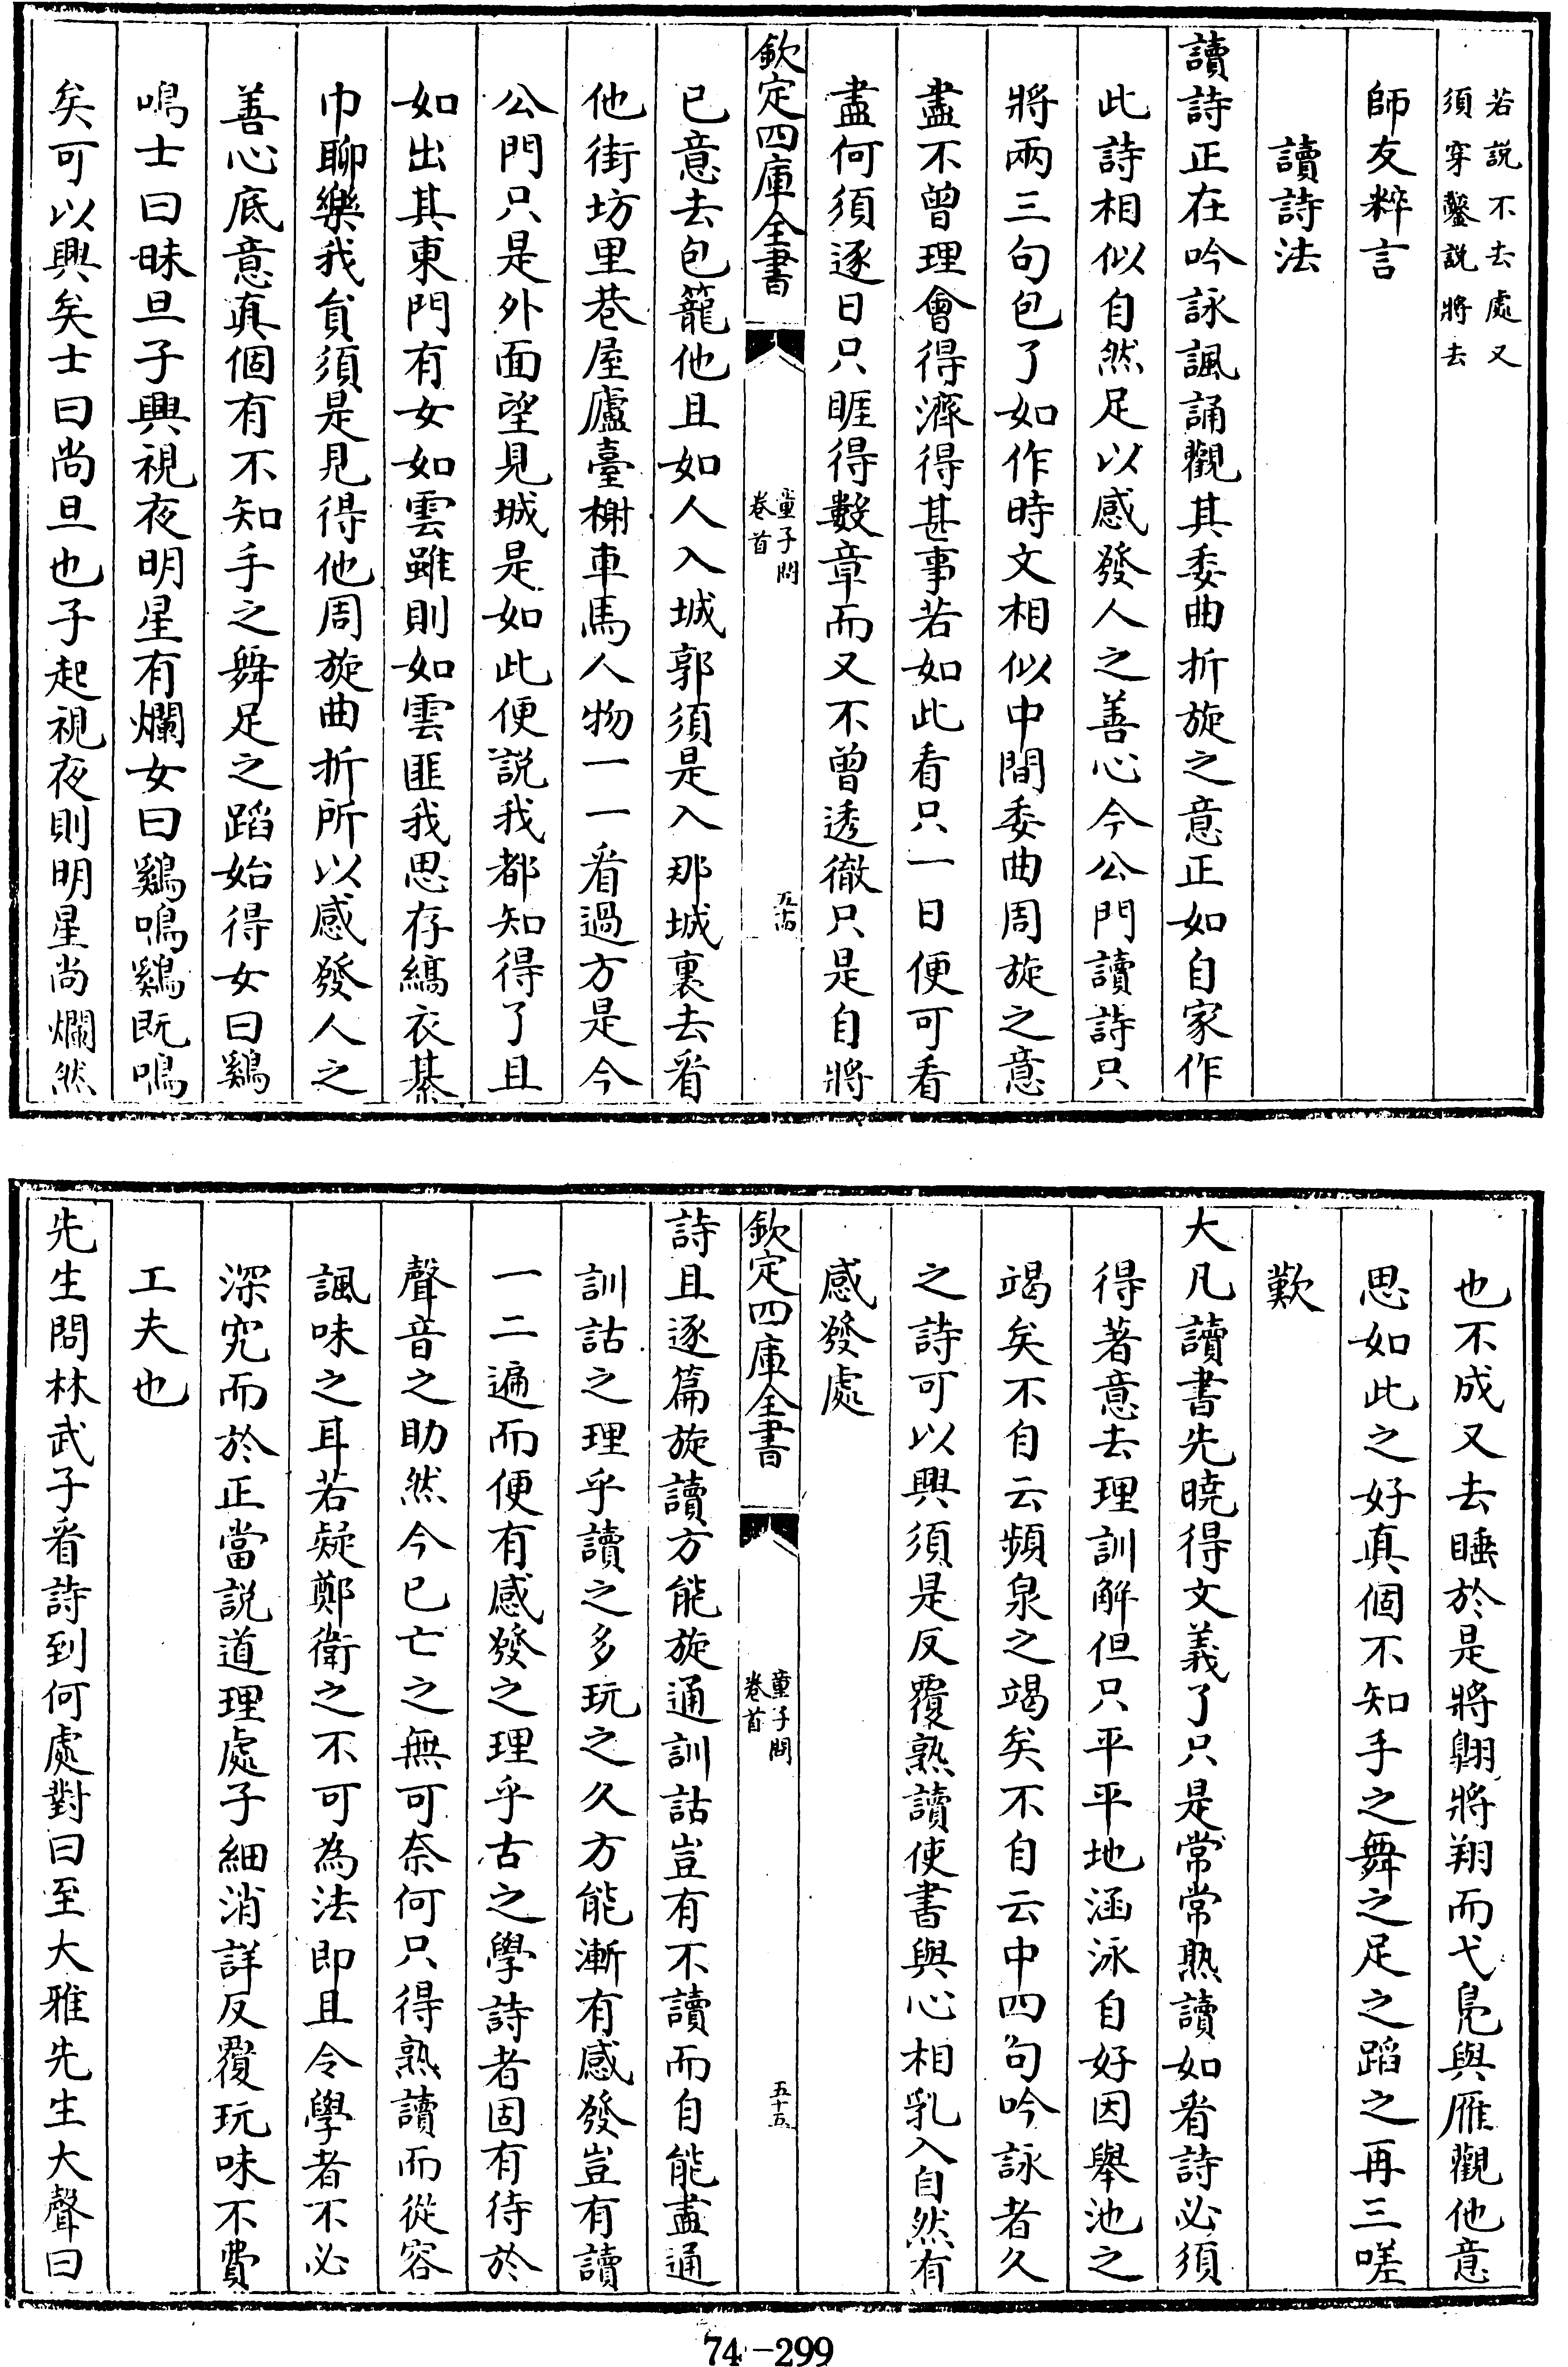 若説不去處又
須穿鑿説將去
師友粹言
讀詩法
讀詩正在吟詠諷誦觀其委曲折旋之意正如自家作
此詩相似自然足以感發人之善心今公門讀詩只
將兩三句包了如作時文相似中間委曲周旋之意
盡不曾理會得濟得甚事若如此看只一日便可看
盡何須逐日只睚得數章而又不曾透徹只是自將
欽定四庫全書
童子問
卷首
五十四
已意去包籠他且如人入城郭須是入那城裏去看
他街坊里巷屋廬臺榭車馬人物一一看過方是今
公門只是外面望見城是如此便説我都知得了且
如出其東門有女如雲雖則如雲匪我思存縞衣綦
巾聊樂我貟須是見得他周旋曲折所以感發人之
善心底意真個有不知手之舞足之蹈始得女曰鷄
鳴士曰昧旦子興視夜明星有爛女曰鷄鳴鷄既鳴
矣可以興矣士曰尚旦也子起視夜則明星尚爛然
也不成又去睡於是將翺將翔而弋鳧與雁觀他意
思如此之好真個不知手之舞之足之蹈之再三嗟
歎
大凡讀書先曉得文義了只是常常熟讀如看詩必須
得著意去理訓解但只平平地涵泳自好因舉池之
竭矣不自云頻泉之竭矣不自云中四句吟詠者久
之詩可以興須是反覆熟讀使書與心相乳入自然有
感發處
欽定四庫全書
童子問
卷首
五十五
詩且逐篇旋讀方能旋通訓詁豈有不讀而自能盡通
訓詁之理乎讀之多玩之久方能漸有感發豈有讀
一二遍而便有感發之理乎古之學詩者固有待於
聲音之助然今已亡之無可奈何只得熟讀而從容
諷味之耳若疑鄭衛之不可為法即且令學者不必
深究而於正當説道理處子細消詳反覆玩味不費
工夫也
先生問林武子看詩到何處對曰至大雅先生大聲曰
74-299